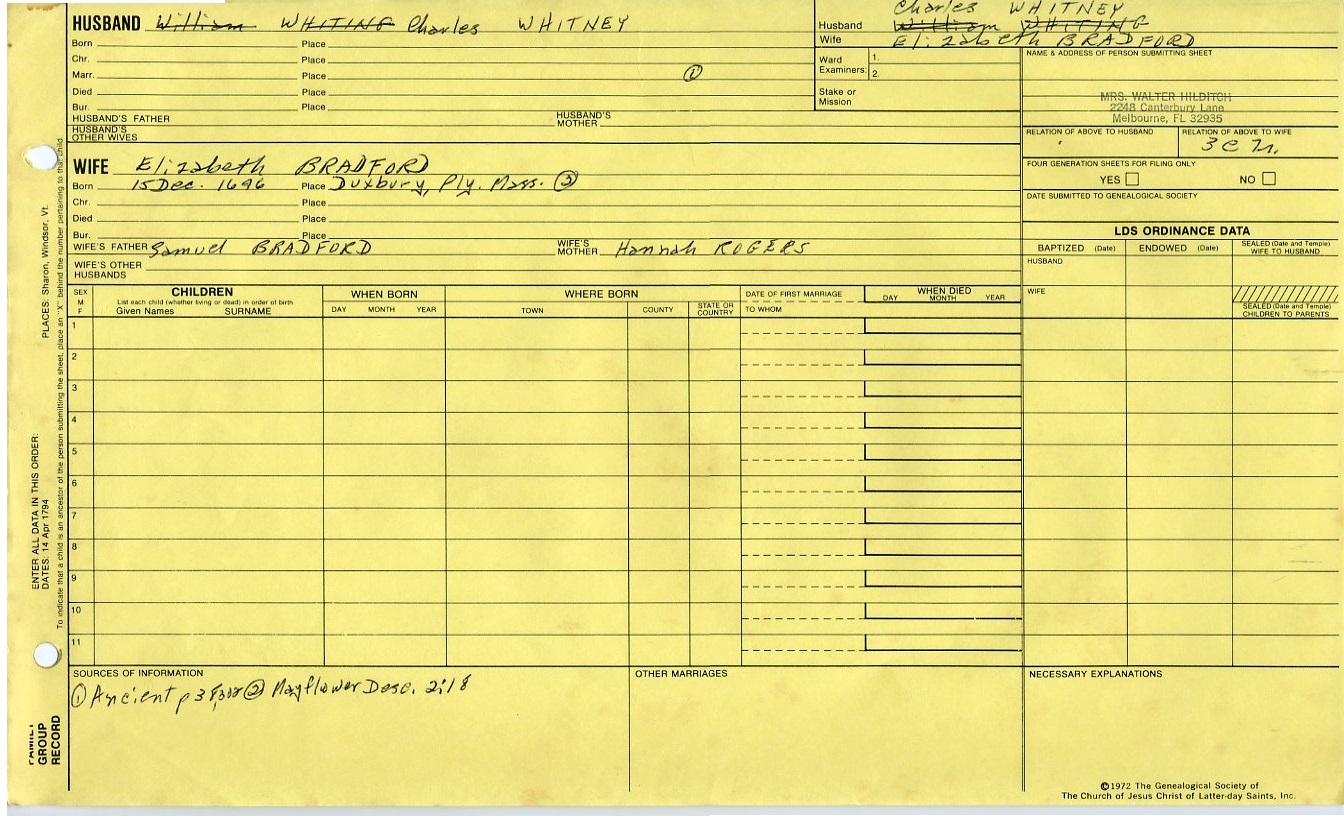 HUSBAND William WHITING Charles WHITNEY
Born Place
Chr. Place
Marr. Place ①
Died Place
Bur. Place
HUSBAND'S FATHER HUSBAND'S MOTHER
HUSBAND'S OTHER WIVES
Charles WHITNEY
Husband William WHITING
Wife Elizabeth BRADFORD
Ward Examiners: 1.
2.
Stake or Mission
NAME & ADDRESS OF PERSON SUBMITTING SHEET
MRS. WALTER HILDITCH
2248 Canterbury Lane
Melbourne, FL 32935
RELATION OF ABOVE TO HUSBAND RELATION OF ABOVE TO WIFE
FOUR GENERATION SHEETS FOR FILING ONLY
YES NO
DATE SUBMITTED TO GENEALOGICAL SOCIETY
WIFE Elizabeth BRADFORD
Born 15 Dec. 1696 Place Duxbury, Ply. Mass. ②
Chr. Place
Died Place
Bur. Place
WIFE'S FATHER Samuel BRADFORD WIFE'S MOTHER Hannah ROGERS
WIFE'S OTHER HUSBANDS
LDS ORDINANCE DATA
BAPTIZED (Date) ENDOWED (Date) SEALED (Date and Temple) WIFE TO HUSBAND
HUSBAND
WIFE
SEALED (Date and Temple) CHILDREN TO PARENTS
SEX M F
CHILDREN
List each child (whether living or dead) in order of birth
Given Names SURNAME
WHEN BORN
DAY MONTH YEAR
WHERE BORN
TOWN COUNTY STATE OR COUNTRY
DATE OF FIRST MARRIAGE
TO WHOM
WHEN DIED
DAY MONTH YEAR
1
2
3
4
5
6
7
8
9
10
11
SOURCES OF INFORMATION
① Ancient p ② Mayflower Desc. 2:18
OTHER MARRIAGES
NECESSARY EXPLANATIONS
©1972 The Genealogical Society of
The Church of Jesus Christ of Latter-day Saints, Inc.
ENTER ALL DATA IN THIS ORDER:
DATES: 14 Apr 1794 PLACES: Sharon, Windsor, Vt.
To indicate that a child is an ancestor of the person submitting the sheet, place an "X" behind the number pertaining to that child
FAMILY GROUP RECORD